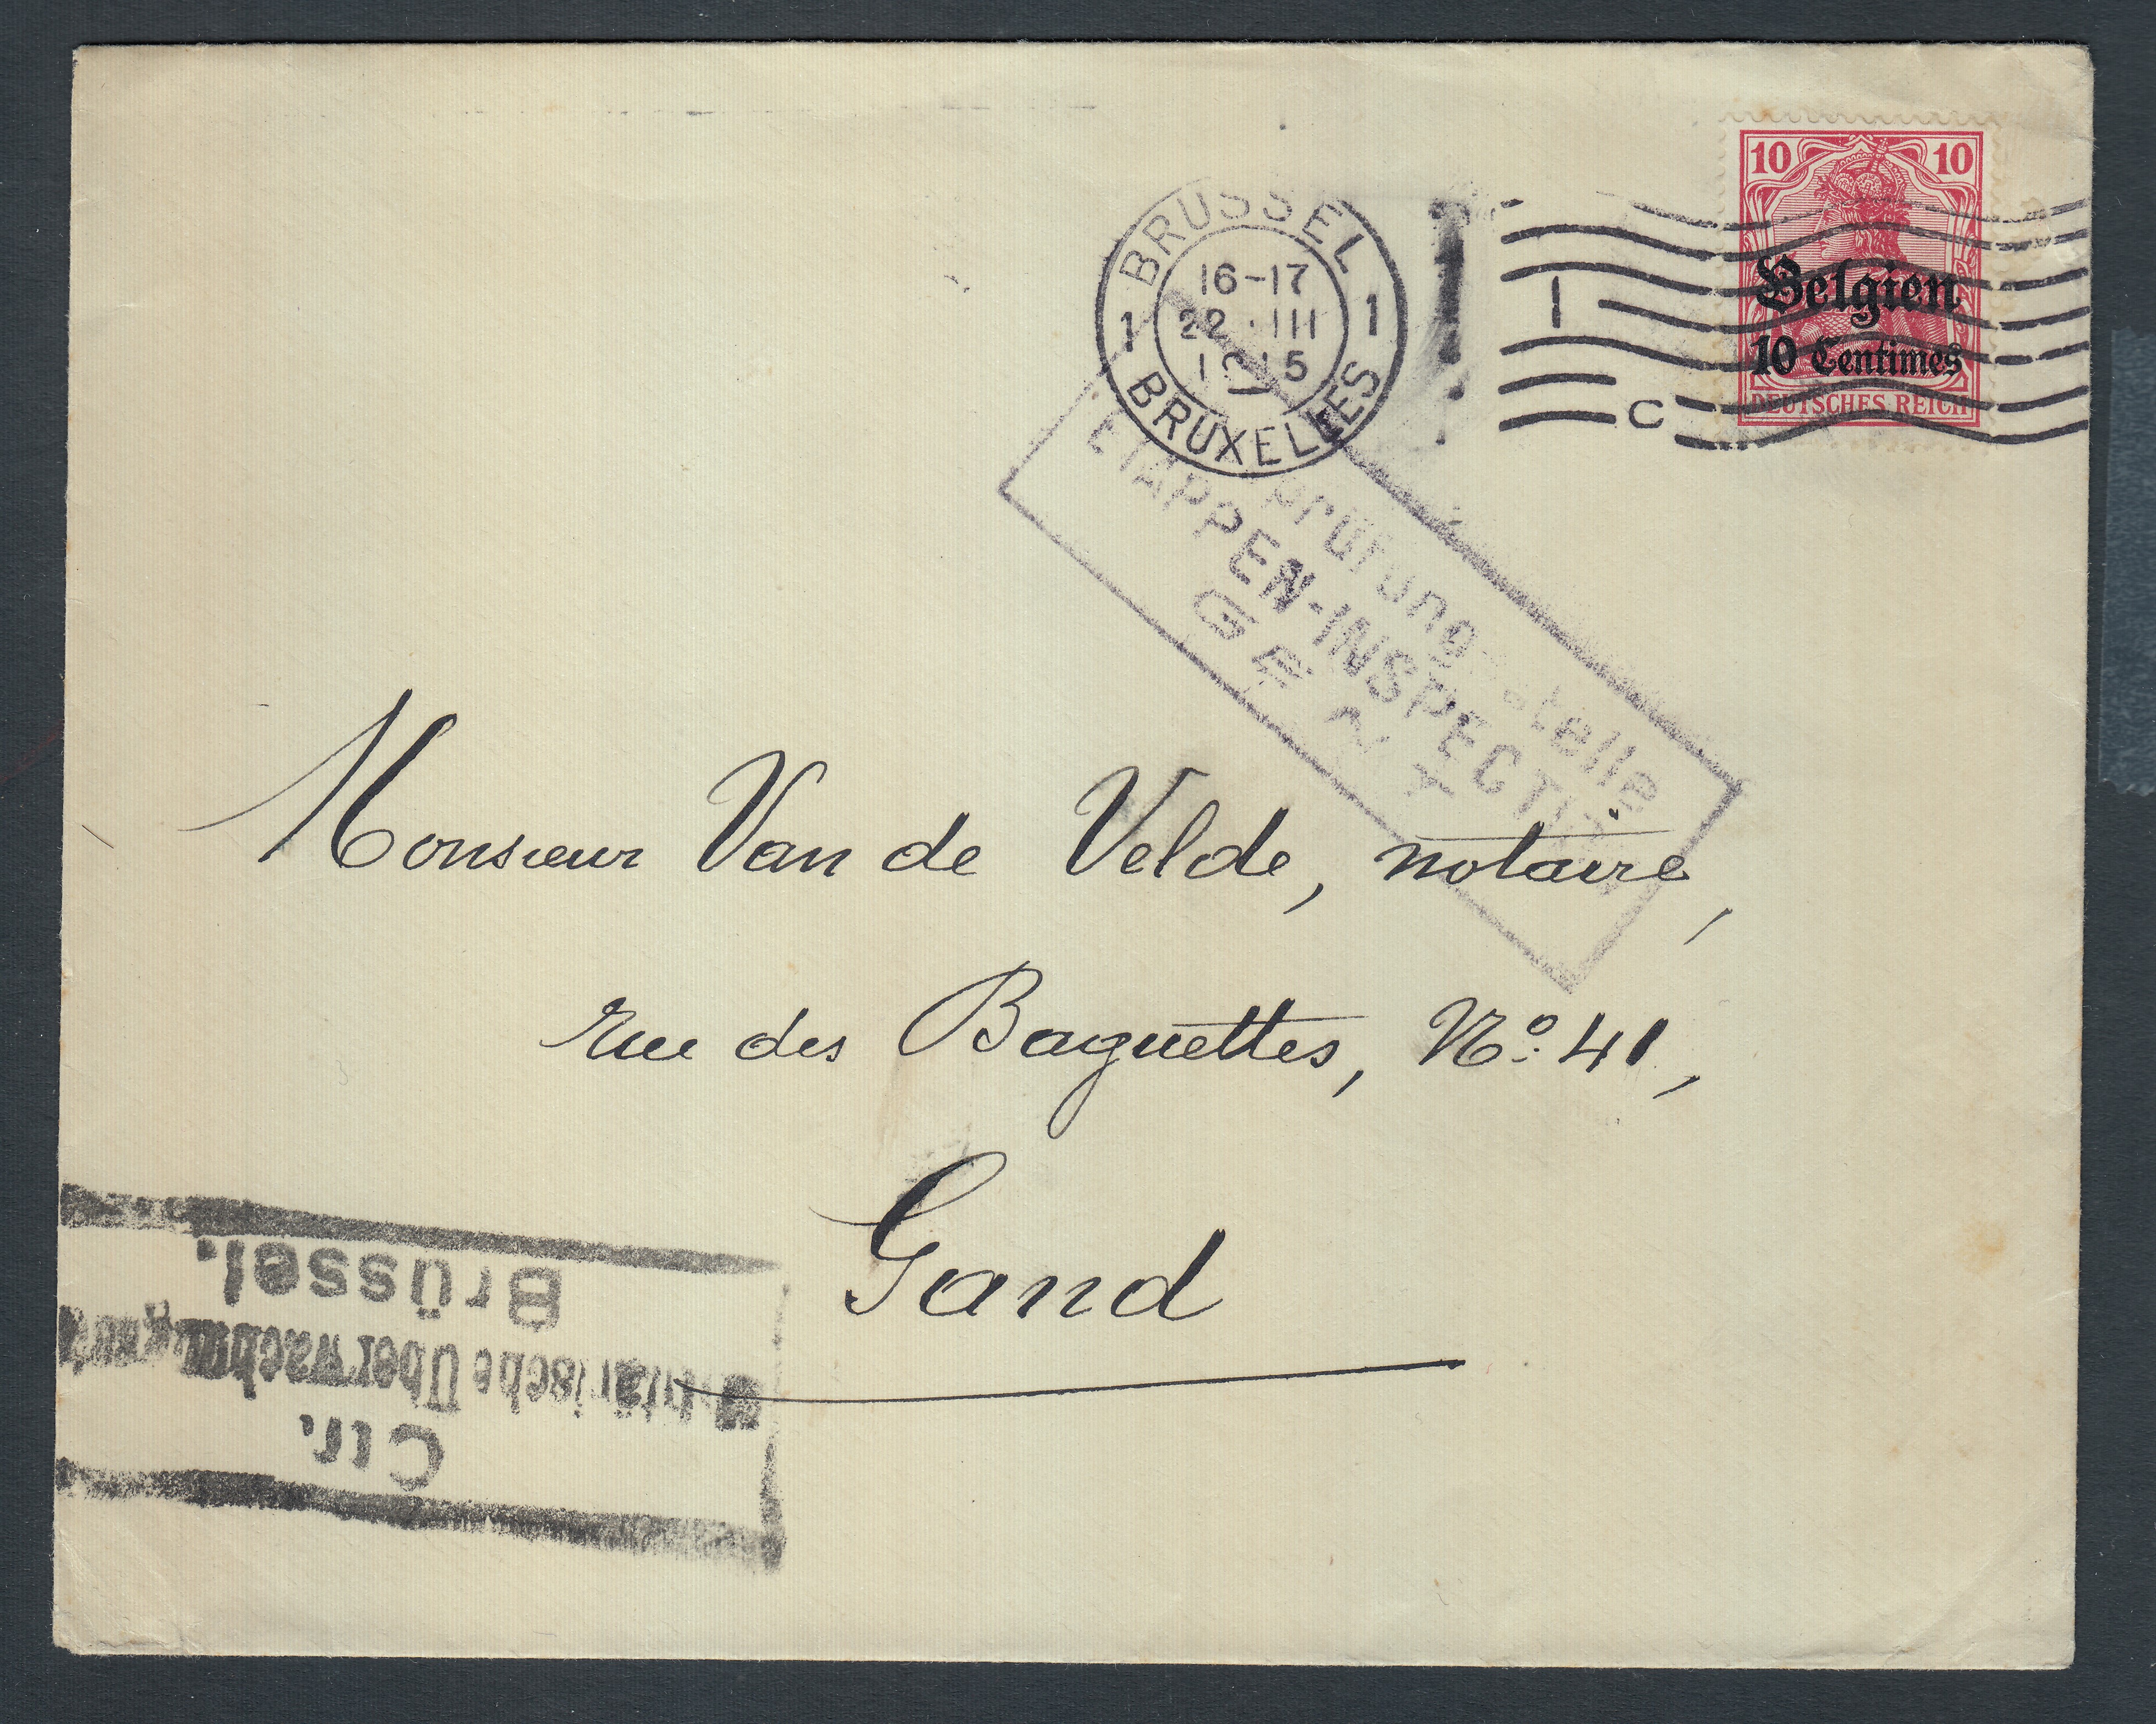 BRUSSEL
16-17
22·III
1915
1 1
BRUXELLES
1
C
10 10
Belgien
10 Centimes
DEUTSCHES REICH
prüfungsstelle
ETAPPEN-INSPECTION
GENT
Monsieur Van de Velde, notaire,
rue des Baguettes, Nº 41,
Gand
Ctr.
Militärische Überwachung
Brüssel.